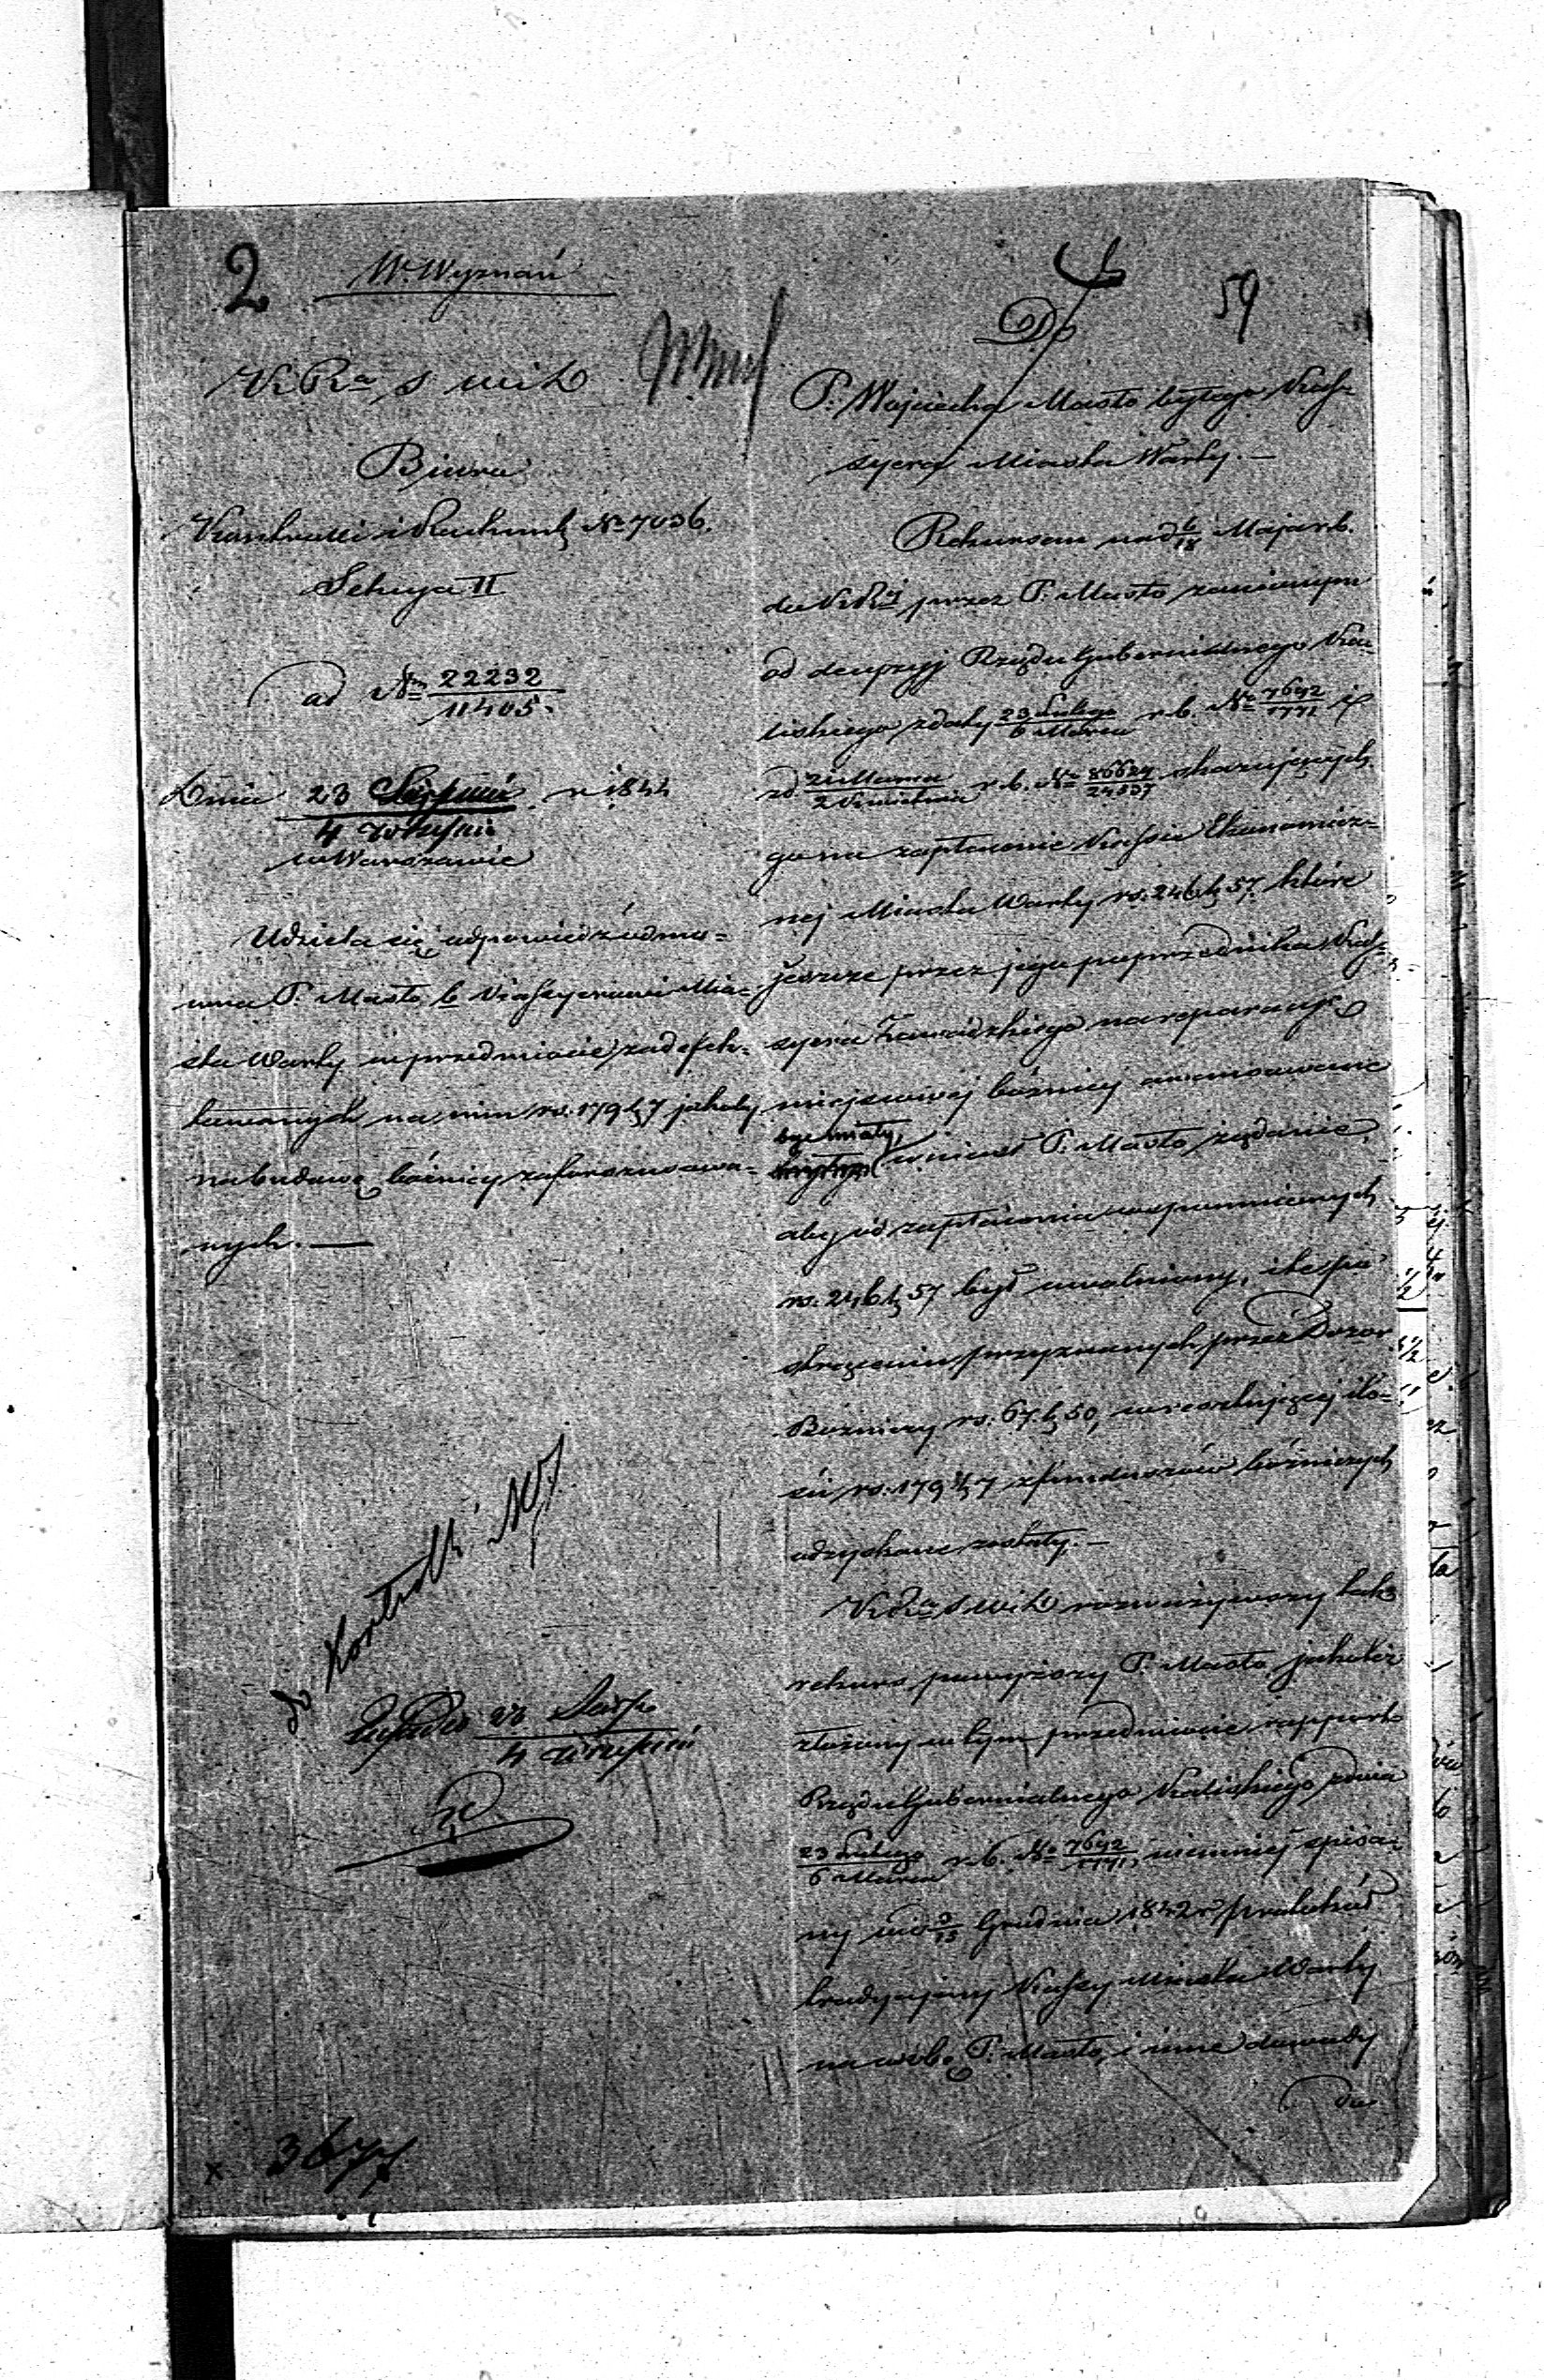 2
W. Wyznań
59
K Ra S W i D
Biura
Kontrolli i Rachunk. No 7036.
Sekcya II
ad No 22232/11405.
Dnia 23 Sierpnia/4 Września r. 1844
w Warszawie
Udziela się odpowiedź odmo=
wna P. Masto b. Kassyerowi Mia=
sta Warty w przedmiocie zadefek=
towanych na nim rs. 179 k 7 jakoby
na budowę bóżnicy zaforszusowa=
nych. —
do Kontrolli
23 Sierp/4 Wrześni
3677
Do
P. Wojciecha Masto byłego Kas=
syera Miasta Warty. —
Rekursem z d 6/18 Maja r. b.
do K R przez P. Masto zaniesionym
od decyzyj Rządu Gubernialnego Ka=
liskiego z daty 23 Lutego/6 Marca r. b. No 7692/1771 i
z d. 21 Marca/2 Kwietnia r. b. No 86624/24537 skazujących
go na zapłacenie Kassie Ekonomicz=
nej Miasta Warty rs. 246 k 57. które
jeszcze przez jego poprzednika Kas=
syera Zawadzkiego na reparacyę
miejscowej bóżnicy awansowane
być miały, wniósł P. Masto żądanie,
aby od zapłacenia wspomnionych
rs. 246 k 57 był uwolniony, i te po
strąceniu przyznanych przez Dozor
Bóżniczy rs. 67 k 50, w resztującej ilo=
ści rs. 179 k 7 z funduszów bóżniczych
odzyskane zostały. —
K Ra S W i D rozważywszy tak
rekurs powyższy P. Masto jakoteż
złożony w tym przedmiocie rapport
Rządu Gubernialnego Kaliskiego z dnia
23 Lutego/6 Marca r. b. No 7692/1771, niemniej spisa=
ny w d 3/15 Grudnia 1842 r. protokół
tradycyjny Kassy Miasta Warty
na osobę P. Masto, i inne dowody
do